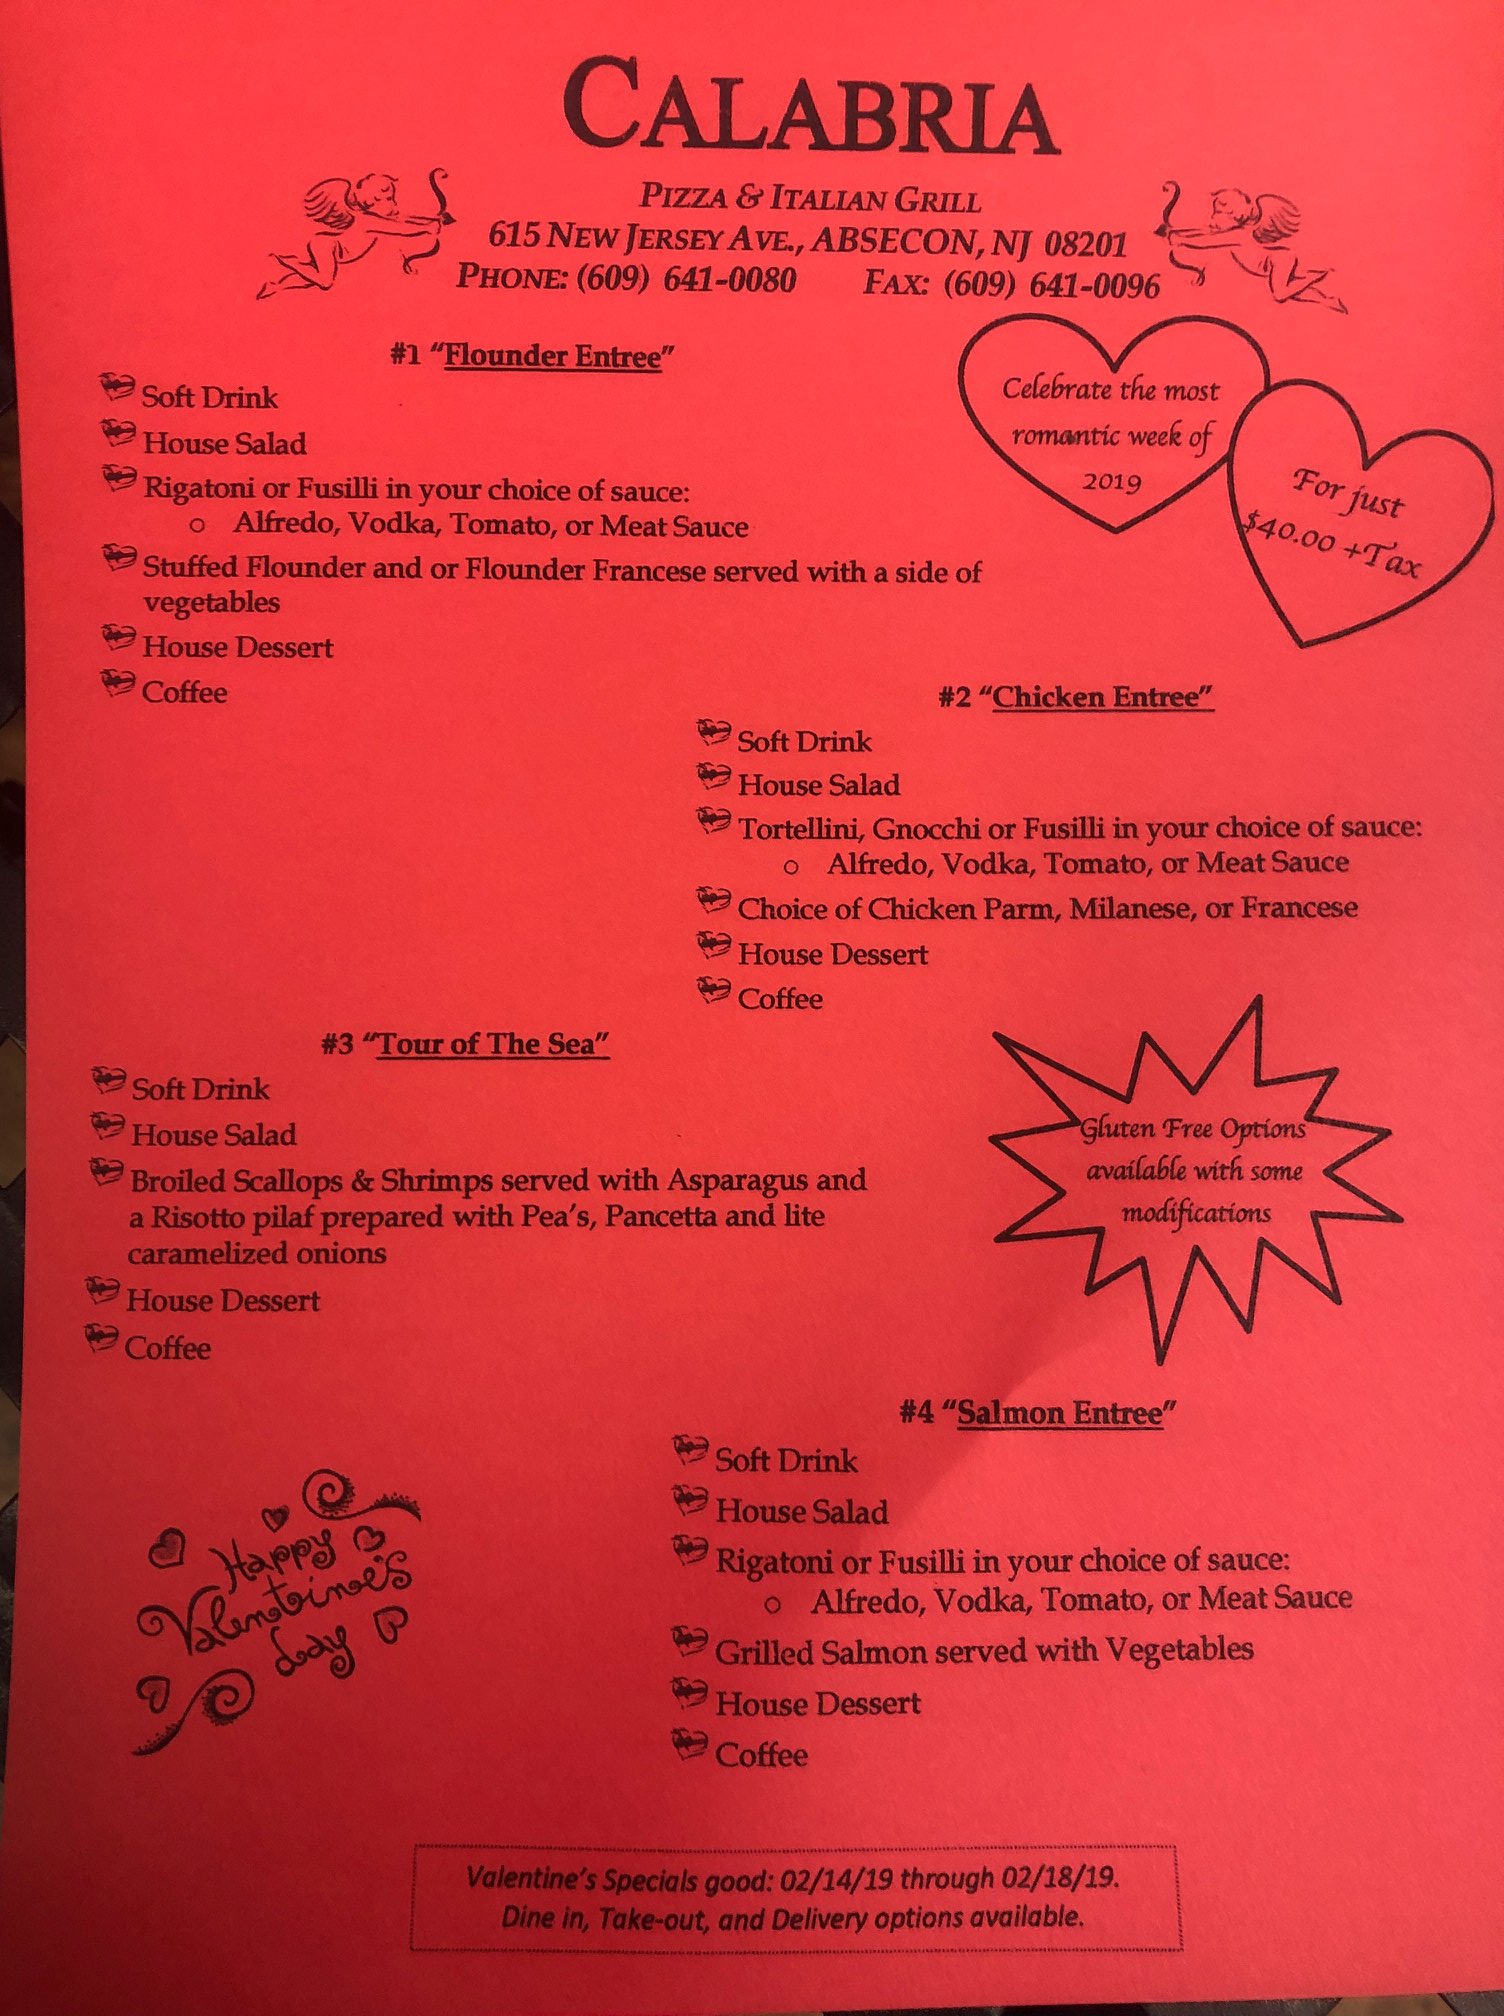 CALABRIA
PIZZA & ITALIAN GRILL
615 NEW JERSEY AVE., ABSECON, NJ 08201
PHONE: (609) 641-0080 FAX: (609) 641-0096
#1 "Flounder Entree"
Soft Drink
House Salad
Rigatoni or Fusilli in your choice of sauce:
o Alfredo, Vodka, Tomato, or Meat Sauce
Stuffed Flounder and or Flounder Francese served with a side of
vegetables
House Dessert
Coffee
Celebrate the most
romantic week of
2019
For just
$40.00 +Tax
#2 "Chicken Entree"
Soft Drink
House Salad
Tortellini, Gnocchi or Fusilli in your choice of sauce:
o Alfredo, Vodka, Tomato, or Meat Sauce
Choice of Chicken Parm, Milanese, or Francese
House Dessert
Coffee
#3 "Tour of The Sea"
Soft Drink
House Salad
Broiled Scallops & Shrimps served with Asparagus and
a Risotto pilaf prepared with Pea's, Pancetta and lite
caramelized onions
House Dessert
Coffee
Gluten Free Options
available with some
modifications
#4 "Salmon Entree"
Soft Drink
House Salad
Rigatoni or Fusilli in your choice of sauce:
o Alfredo, Vodka, Tomato, or Meat Sauce
Grilled Salmon served with Vegetables
House Dessert
Coffee
Happy
Valentine's
day
Valentine's Specials good: 02/14/19 through 02/18/19.
Dine in, Take-out, and Delivery options available.